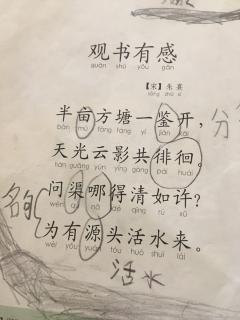 观书有感
guān shū yǒu gǎn
【宋】朱熹
sòng zhū xī
半亩方塘一鉴开，
bàn mǔ fāng táng yí jiàn kāi
天光云影共徘徊。
tiān guāng yún yǐng gòng pái huái
问渠哪得清如许？
wèn qú nǎ dé qīng rú xǔ
为有源头活水来。
wèi yǒu yuán tóu huó shuǐ lái
活水